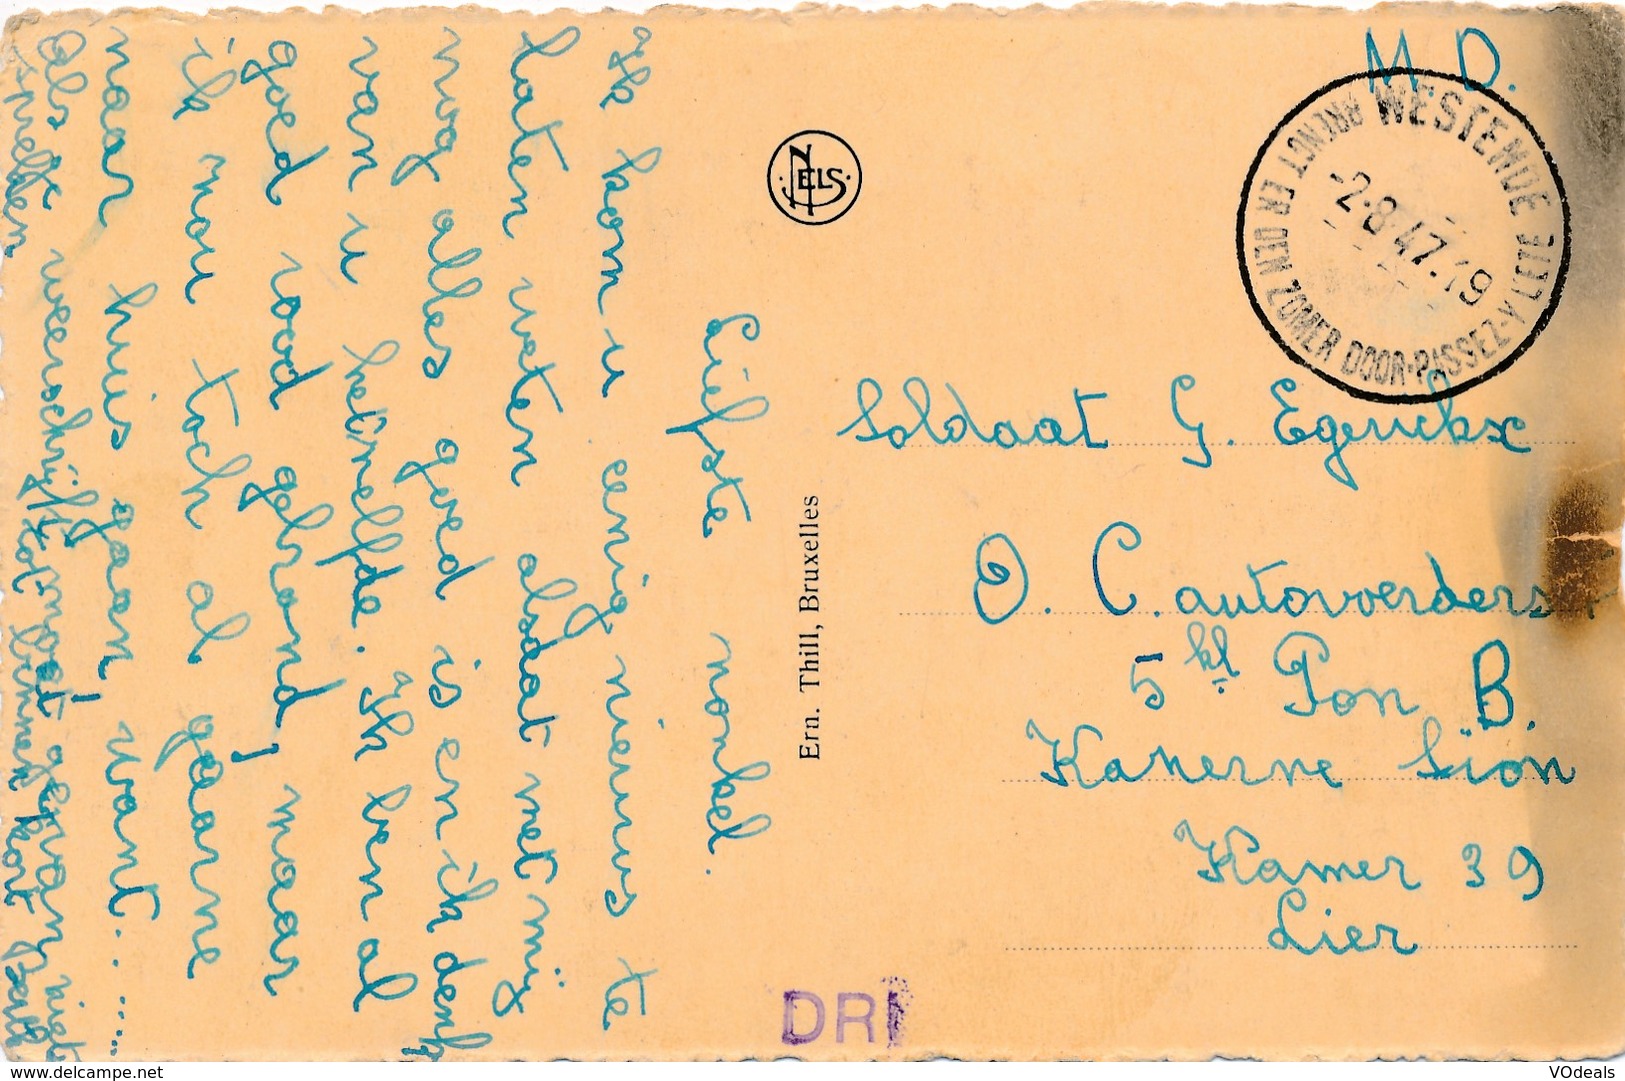 Liefste nonkel.
Ik kom u enig nieuws te
laten weten alsdat met mij
nog alles goed is en ik denk
van u hetzelfde. Ik ben al
goed rood gebrand! maar
ik zou toch al gaarne
naar huis gaan, want.......
Als ge weerschrijft moet ge van niet
spreken
tot binnen kort
NELS
Ern. Thill, Bruxelles
M. D.
WESTENDE
BRENGT ER DEN ZOMER DOOR-PASSEZ-Y L'ETE
-2-8-47.19
Soldaat G. Egerickx
O. C. autovoerders
5 kl. Pon B.
Kazerne Sion
Kamer 39
Lier
DRI
www.delcampe.net
VOdeals